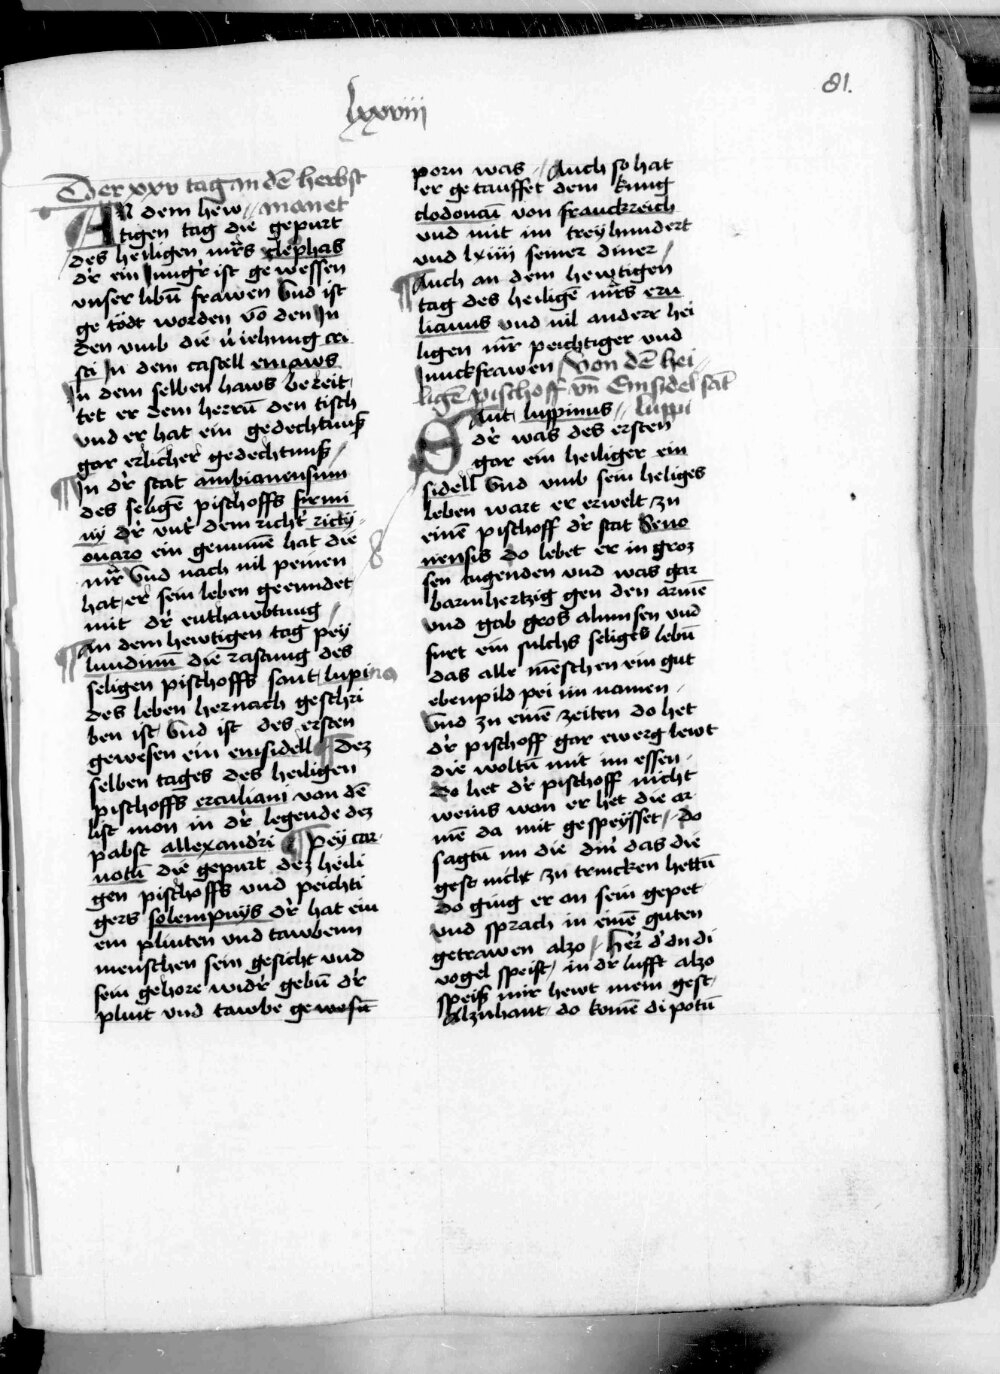 81.
lxxviii
Der xxv tag an dē herbst
AN dem hew // monet
tigen tag die gepurt
des heiligen mr̄s clephas
dr̄ ein Jungr̄ ist gewessen
vnser libū frawen Vnd ist
ge tödt worden vō den Jn
den vmb die v̈iehung cri
sti Jn dem castell emaws
Jn dem selben haws bereit
tet er dem herrū den tisch
vnd er hat ein gedechtnuß
gar erlicher gedechtnuß /
Jn dr̄ stat ambianensium
des seligē pischoffs firmi
nj dr̄ vnt̄ dem richt̄ ricty
ouaro ein genumē hat die
mr̄ Vnd nach vil peinen
hat er sein leben geenndet
mit dr̄ enthawbtung
An dem hewtigen tag pey
lundinū die rasūng des
seligen pischoffs sant lupinq
des leben hernach geschri
ben ist Vnd ist des ersten
gewesen ein einsidell Dez
selben tages des heiligen
pischoffs erculiani von dē
list mon in dr̄ legende dez
pabst allexandri Pey car
notū die gepurt dez heili
gen pischoffs vnd peichti
gers solempnijs dr̄ hat ein
em plinten vnd tawbenn
menschen sein gesicht vnd
sein gehore widr̄ gebū dr̄
plint vnd tawbe gewesū
porn was // Auch so hat
er getauffet dem kung
clodoneū von franckreich
vnd mit im treyhundert
vnd lxiiii seiner diner /
Auch an dem hewtigen
tag des heiligē mr̄s ercu
lianus vnd vil anderr hei
ligen mr̄ peichtiger vnd
Junckfrawen / Von dē hei
ligē pischoff vn̄ Einsidel sāt
Sant luppinus // luppi
dr̄ was des ersten
gar ein heiliger ein
sidell Vnd vmb sein heliges
leben wart er erwelt zu
einē pischoff dr̄ stat Seno
nensis do lebet er in groz
sen tugenden vnd was gar
barmhertzig gen den armē
vnd gab gros almusen vnd
furt ein sulchs seliges lebū
das alle mēschen ein gut
ebenpild pei im namen /
Vnd zu einē zeiten do het
dr̄ pischoff gar ewerg lewt
die woltū mit im essen
do het dr̄ pischoff nicht
weins won er het die ar
mē da mit gespeysset // do
sagtū im die din̄ das die
gest nicht zu trincken hettū
do ging er an sein gepet
vnd sprach in einē guten
getrawen alzo / her̄ d dn di
vogel speist / in dr̄ lufft alzo
speiß mir hewt mein gest /
Alzuhant do komē di potū